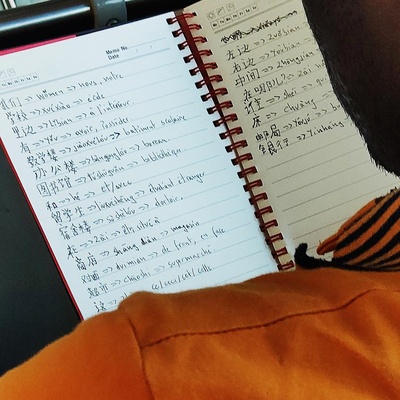 Memo No.
Date
我们 => women => nous, notre
学校 => xuéxiào => école
里边 => lǐbian => à l'intérieur
有 => yǒu => avoir, posséder
教学楼 => jiàoxuélóu => batiment scolaire
办公楼 => bàngōnglóu => bureau
图书馆 => túshūguǎn => bibliothèque
和 => hé => et/avec
留学生 => liúxuéshēng => étudiant étranger
宿舍楼 => sùshèlóu => dortoir
在 => zài =>
商店 => shāngdiàn => magasin
对面 => duìmiàn => de front, en face
超市 => chāoshì => supermarché
这 => ce/ceci/cet/cette
左边 => zuǒbian
右边 => yòubian
中间 => zhōngjiān
在哪儿? => zài
谁 => shéi
床 => chuáng
邮局 => yóujú
银行 => yínháng